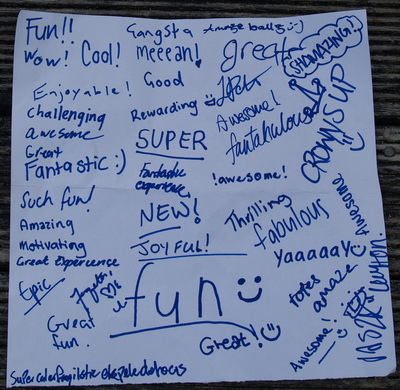 Fun!!
Wow! Cool!
Gangsta
meeean!
Amaze balls :)
great
SHAMAZING!
Enjoyable!
Good
Challenging
Rewarding
awesome
Awesome!
Great
SUPER
fantabulous
GROWNS UP
Fantastic :)
Fantastic
experience
!awesome!
Such fun!
NEW!
Thrilling
Awesome
Amazing
fabulous
Motivating
JOYFUL!
Great Experience
yaaaaay
Epic
fun
totes
amaze
Great
fun.
Great!
Awesome!